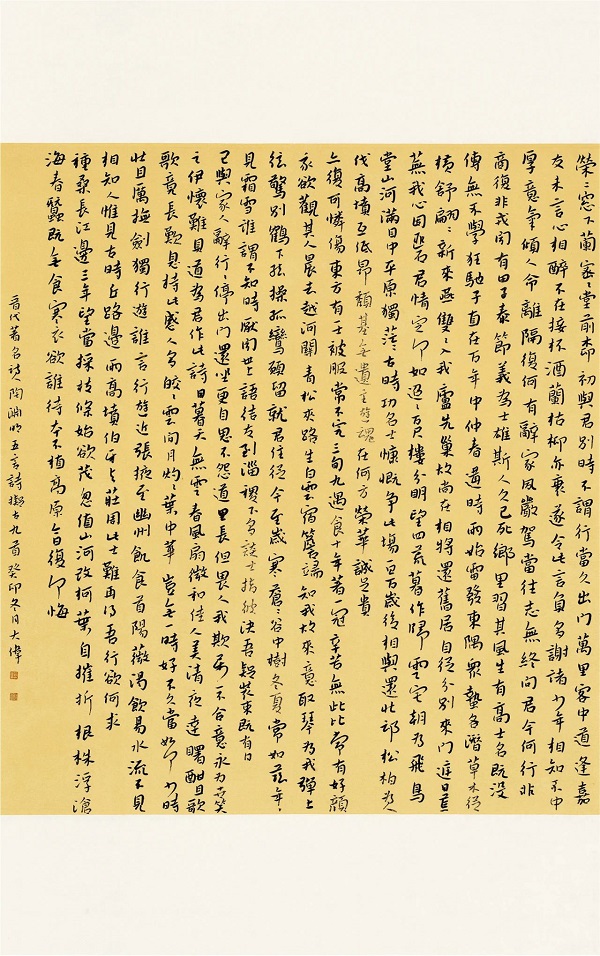 榮〻窗下蘭密〻堂前柳初與君別時不謂行當久出門萬里客中道逢嘉
友未言心相醉不在接杯酒蘭枯柳亦衰遂令此言負多謝諸少年相知不中
厚意氣傾人命離隔復何有辭家夙嚴駕當往志無終問君今何行非
商復非戎聞有田子泰節義為士雄斯人久已死鄉里習其風生有高士名既沒
傳無不學狂馳子直在百年中仲春遘時雨始雷發東隅眾蟄各潛草木從
橫舒翩〻新來燕雙〻入我廬先巢故尚在相將還舊居自從分別來門庭日荒
蕪我心固匪石君情定何如迢〻百尺樓分明望四荒暮作歸雲宅朝為飛鳥
堂山河滿目中平原獨茫〻古時功名士慷慨爭此場一旦百歲後相與還北邙松柏為人
伐高墳互低昂頹基無遺主遊魂在何方榮華誠足貴
亦復可憐傷東方有一士被服常不完三旬九遇食十年著一冠辛苦無此比常有好顏
我欲觀其人晨去越河關青松夾路生白雲宿簷端知我故來意取琴為我彈上
弦驚別鶴下弦操孤鸞願留就君住從今至歲寒蒼〻谷中樹冬夏常如茲年〻
見霜雪誰謂不知時厭聞世上語結友到淄稷下多談士指彼決吾疑裝束既有日
已與家辭行〻停出門還坐更自思不怨道里長但畏人我欺萬一不合意永為世笑
之伊懷難具道為君作此詩日暮天無雲春風扇微和佳人美清夜達曙酣且歌
歌竟長歎息持此感人多皎〻雲間月灼〻葉中華豈無一時好不久當如何少時
壯且厲撫劍獨行遊誰言行遊近張掖至幽州飢食首陽薇渴飲易水流不見
相知人惟見古時丘路邊兩高墳伯牙與莊周此士難再得吾行欲何求
種桑長江邊三年望當採枝條始欲茂忽值山河改柯葉自摧折根株浮滄
海春蠶既無食寒衣欲誰待本不植高原今日復何悔
晉代著名詩人陶淵明五言詩擬古九首癸卯冬月大偉